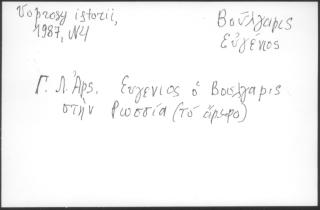 Voprosy istorii,
1987, N4
Βούλγαρις
Εὐγένιος
Γ. Λ. Ἀρς. Ευγενιος ὁ Βουλγαρις
στὴν Ρωσσία (τὸ ἄρθρο)